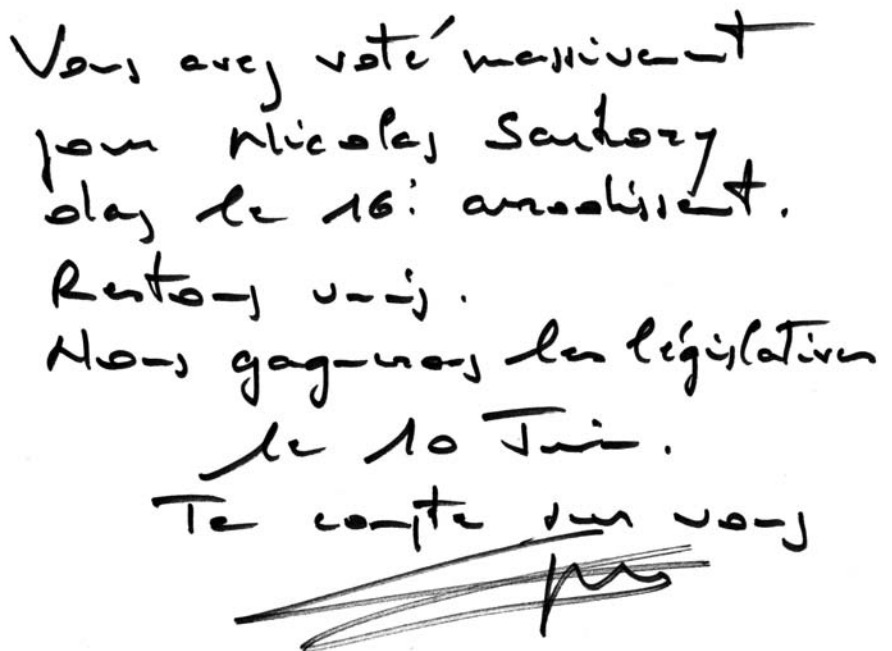 Vous avez voté massivement
pour Nicolas Sarkozy
dans le 16è arrondissement.
Restons unis.
Nous gagnerons les législatives
le 10 Juin.
Je compte sur vous